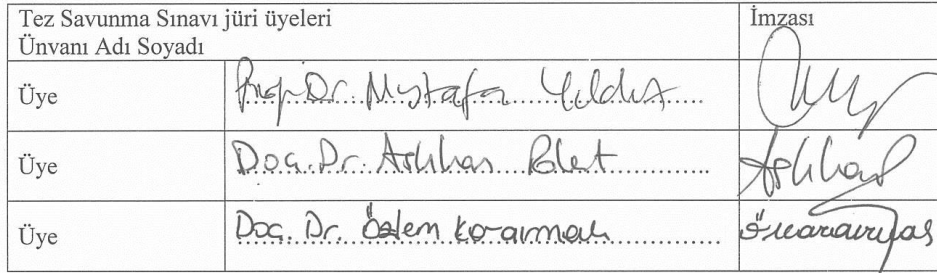 Tez Savunma Sınavı jüri üyeleri
Ünvanı Adı Soyadı
İmzası
Üye
Prof. Dr. Mustafa Yıldız
Üye
Doç. Dr. Aslıhan Polat
Üye
Doç. Dr. Özlem